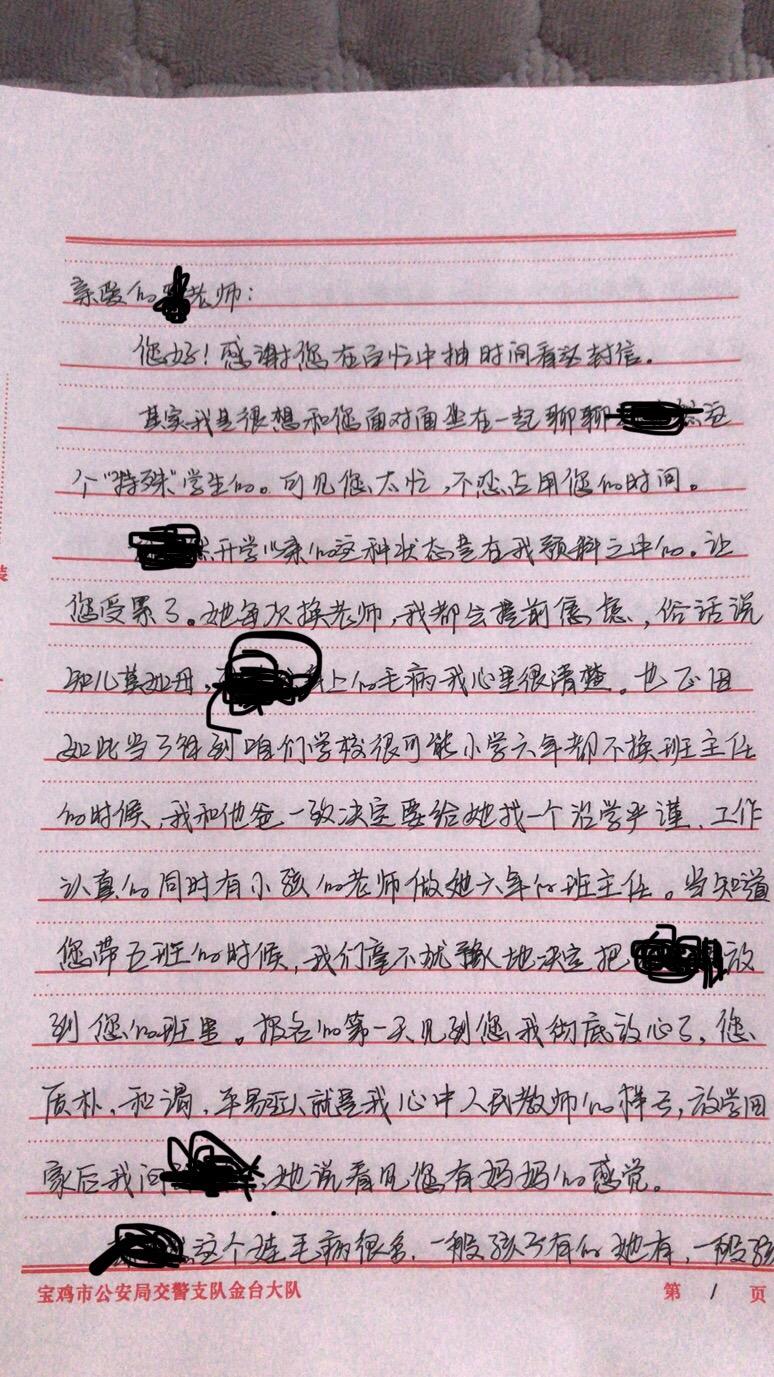 亲爱的老师：
您好！感谢您在百忙中抽时间看这封信。
其实我是很想和您面对面坐在一起聊聊这
个“特殊”学生的。可见您太忙，不忍占用您的时间。
开学以来的这种状态是在我预料之中的。让
您受累了。她每次换老师，我都会提前焦虑，俗话说
知儿莫如母，身上的毛病我心里很清楚。也正因
如此当了解到咱们学校很可能小学六年都不换班主任
的时候，我和他爸一致决定要给她找一个治学严谨、工作
认真的同时有小孩的老师做她六年的班主任。当知道
您带五班的时候，我们毫不犹豫地决定把放
到您的班里。报名的第一天见到您我彻底放心了，您
质朴、和谒、平易近人就是我心中人民教师的样子，放学回
家后我问：她说看见您有妈妈的感觉。
这个娃毛病很多，一般孩子有的她有，一般孩
宝鸡市公安局交警支队金台大队 第 1 页